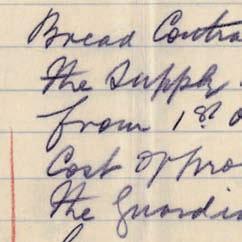 Bread Contra
the supply
from 1st o
Cost of pro
the guardia